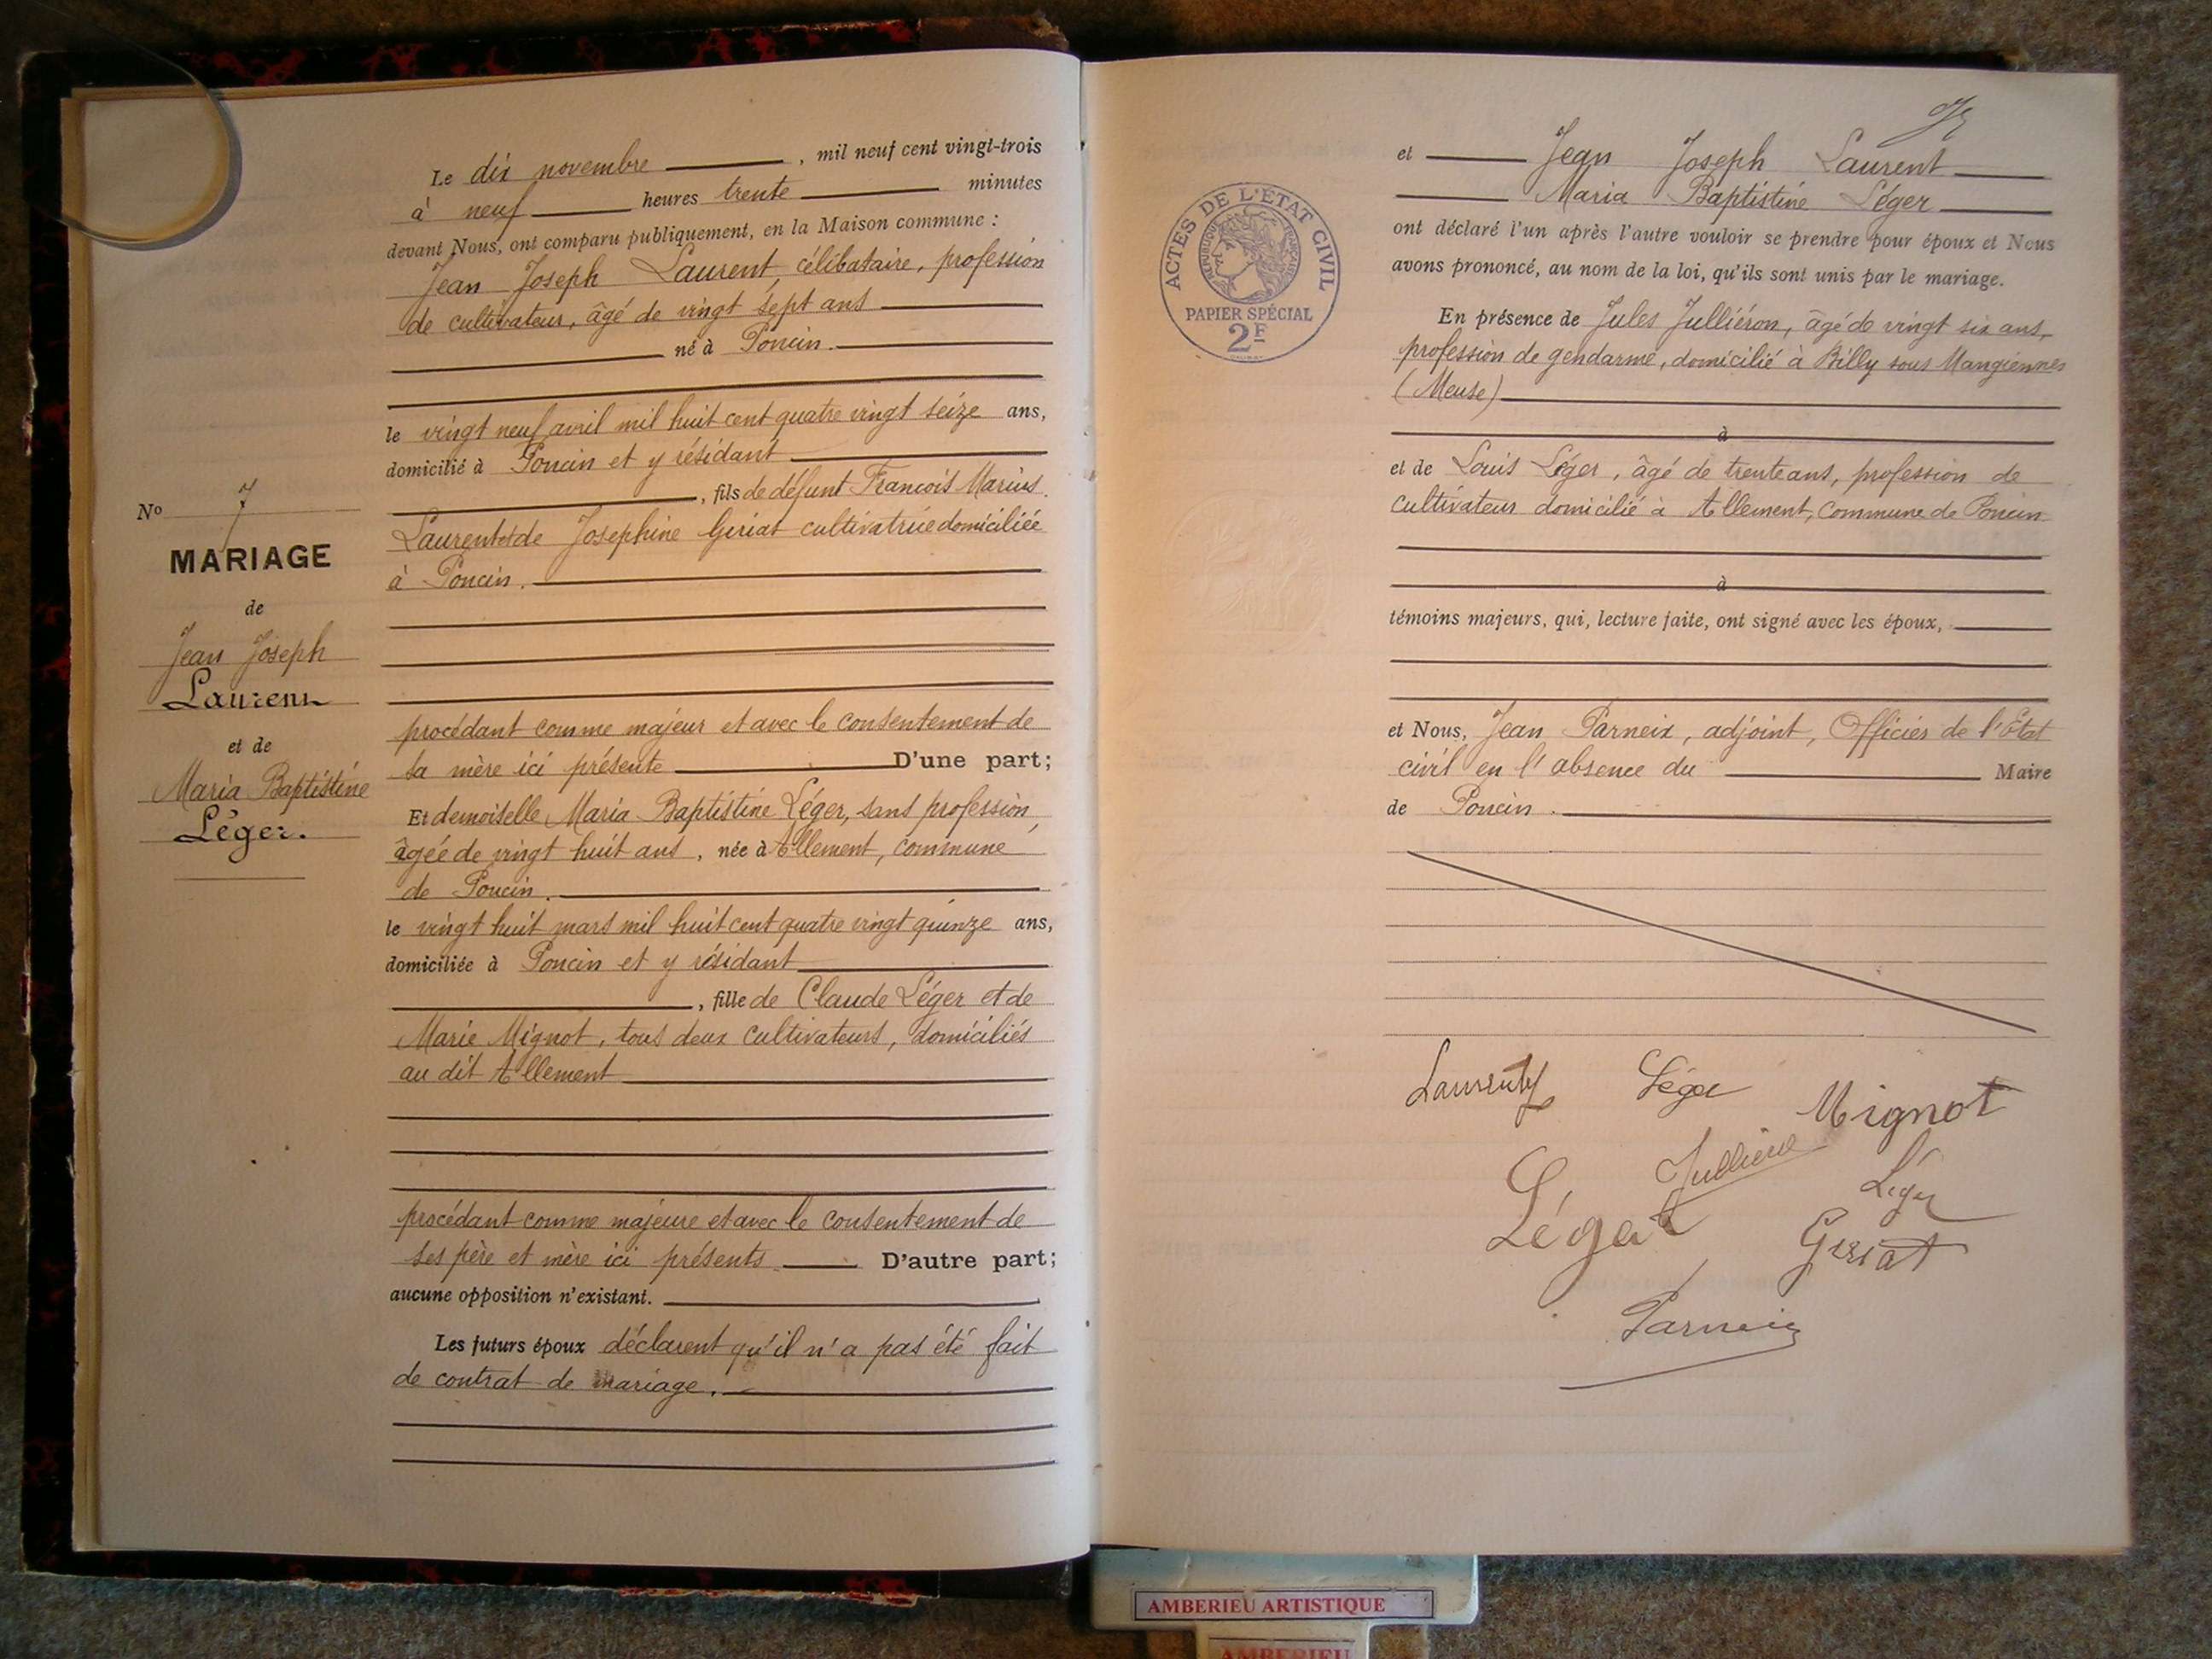 Le dix novembre, mil neuf cent vingt-trois
à neuf heures trente minutes
devant Nous, ont comparu publiquement, en la Maison commune :
Jean Joseph Laurent, célibataire, profession
de cultivateur, âgé de vingt sept ans
né à Poncin.
le vingt neuf avril mil huit cent quatre vingt seize ans,
domicilié à Poncin et y résidant
, fils de défunt François Marius
Laurent et de Josephine Geriat cultivatrice domiciliée
à Poncin.
procédant comme majeur et avec le consentement de
sa mère ici présente D'une part;
Et demoiselle Maria Baptistine Léger, sans profession,
âgée de vingt huit ans, née à Allement, commune
de Poncin.
le vingt huit mars mil huit cent quatre vingt quinze ans,
domiciliée à Poncin et y résidant
, fille de Claude Léger et de
Marie Mignot, tous deux cultivateurs, domiciliés
au dit Allement
procédant comme majeure et avec le consentement de
ses père et mère ici présents D'autre part;
aucune opposition n'existant.
Les futurs époux déclarent qu'il n'a pas été fait
de contrat de mariage.
No 7
MARIAGE
de
Jean Joseph
Laurent
et de
Maria Baptistine
Léger.
et Jean Joseph Laurent
Maria Baptistine Léger
ont déclaré l'un après l'autre vouloir se prendre pour époux et Nous
avons prononcé, au nom de la loi, qu'ils sont unis par le mariage.
En présence de Jules Julliéron, âgé de vingt six ans,
profession de gendarme, domicilié à Billy sous Mangiennes
(Meuse)
à
et de Louis Léger, âgé de trente ans, profession de
cultivateur domicilié à Allement, commune de Poncin
à
témoins majeurs, qui, lecture faite, ont signé avec les époux,
et Nous, Jean Parneix, adjoint, Officier de l'Etat
civil en l'absence du Maire
de Poncin.
Laurent Léger Mignot
Léger
Léger
Geriat
Parneix
ACTES DE L'ÉTAT CIVIL
RÉPUBLIQUE FRANÇAISE
PAPIER SPÉCIAL
2F
AMBERIEU ARTISTIQUE
AMBERIEU